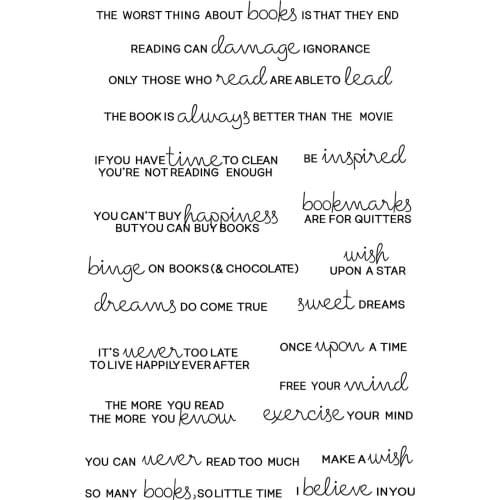 THE WORST THING ABOUT books IS THAT THEY END
READING CAN damage IGNORANCE
ONLY THOSE WHO read ARE ABLE TO lead
THE BOOK IS always BETTER THAN THE MOVIE
IF YOU HAVE time TO CLEAN
YOU'RE NOT READING ENOUGH
BE inspired
YOU CAN'T BUY happiness
BUT YOU CAN BUY BOOKS
bookmarks
ARE FOR QUITTERS
binge ON BOOKS (& CHOCOLATE)
wish
UPON A STAR
dreams DO COME TRUE
sweet DREAMS
IT'S never TOO LATE
TO LIVE HAPPILY EVER AFTER
ONCE upon A TIME
FREE YOUR mind
THE MORE YOU READ
THE MORE YOU know
exercise YOUR MIND
YOU CAN never READ TOO MUCH
MAKE A wish
SO MANY books, SO LITTLE TIME
I believe IN YOU